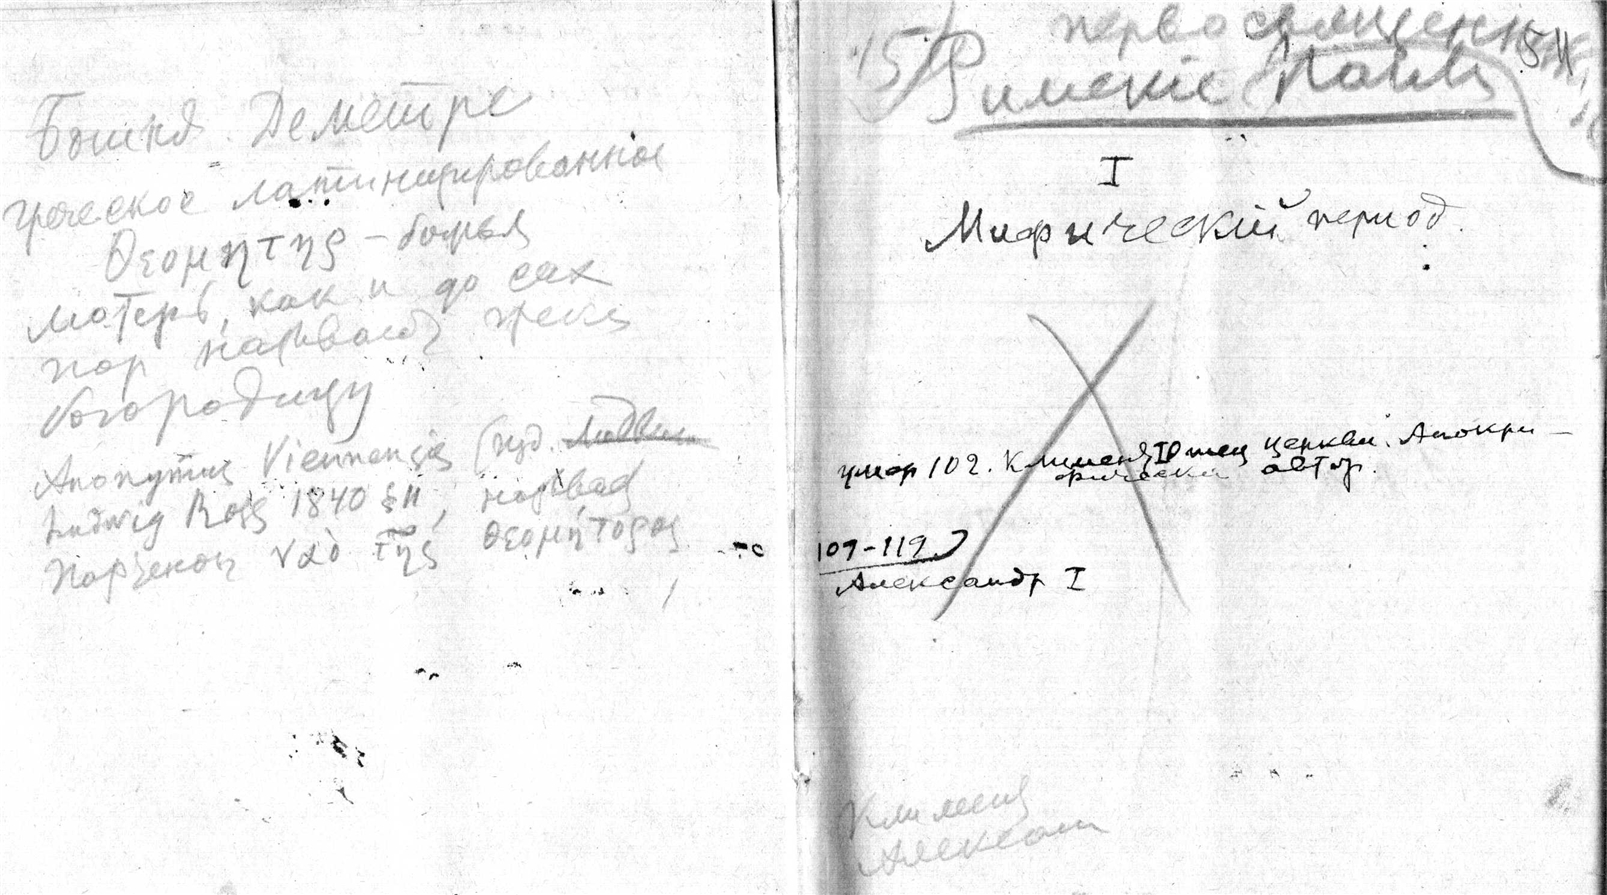 Богиня Деметре
греческое латинизированное
Θεομητης – божья
матерь, как и до сах
пор называют греки
богородицу
Anonymus Viennensis (изд.
Ludwig Ross 1840 §11, называе
Парθенон ναὸ τῆς Θεομητορος
15) первосвященники 511
Римскіе Папы
I
Мифическій период.
умер 102. Климент I Отец церкви. Апокри–
фически автор.
109–119
Александр I
Климент
Алексан